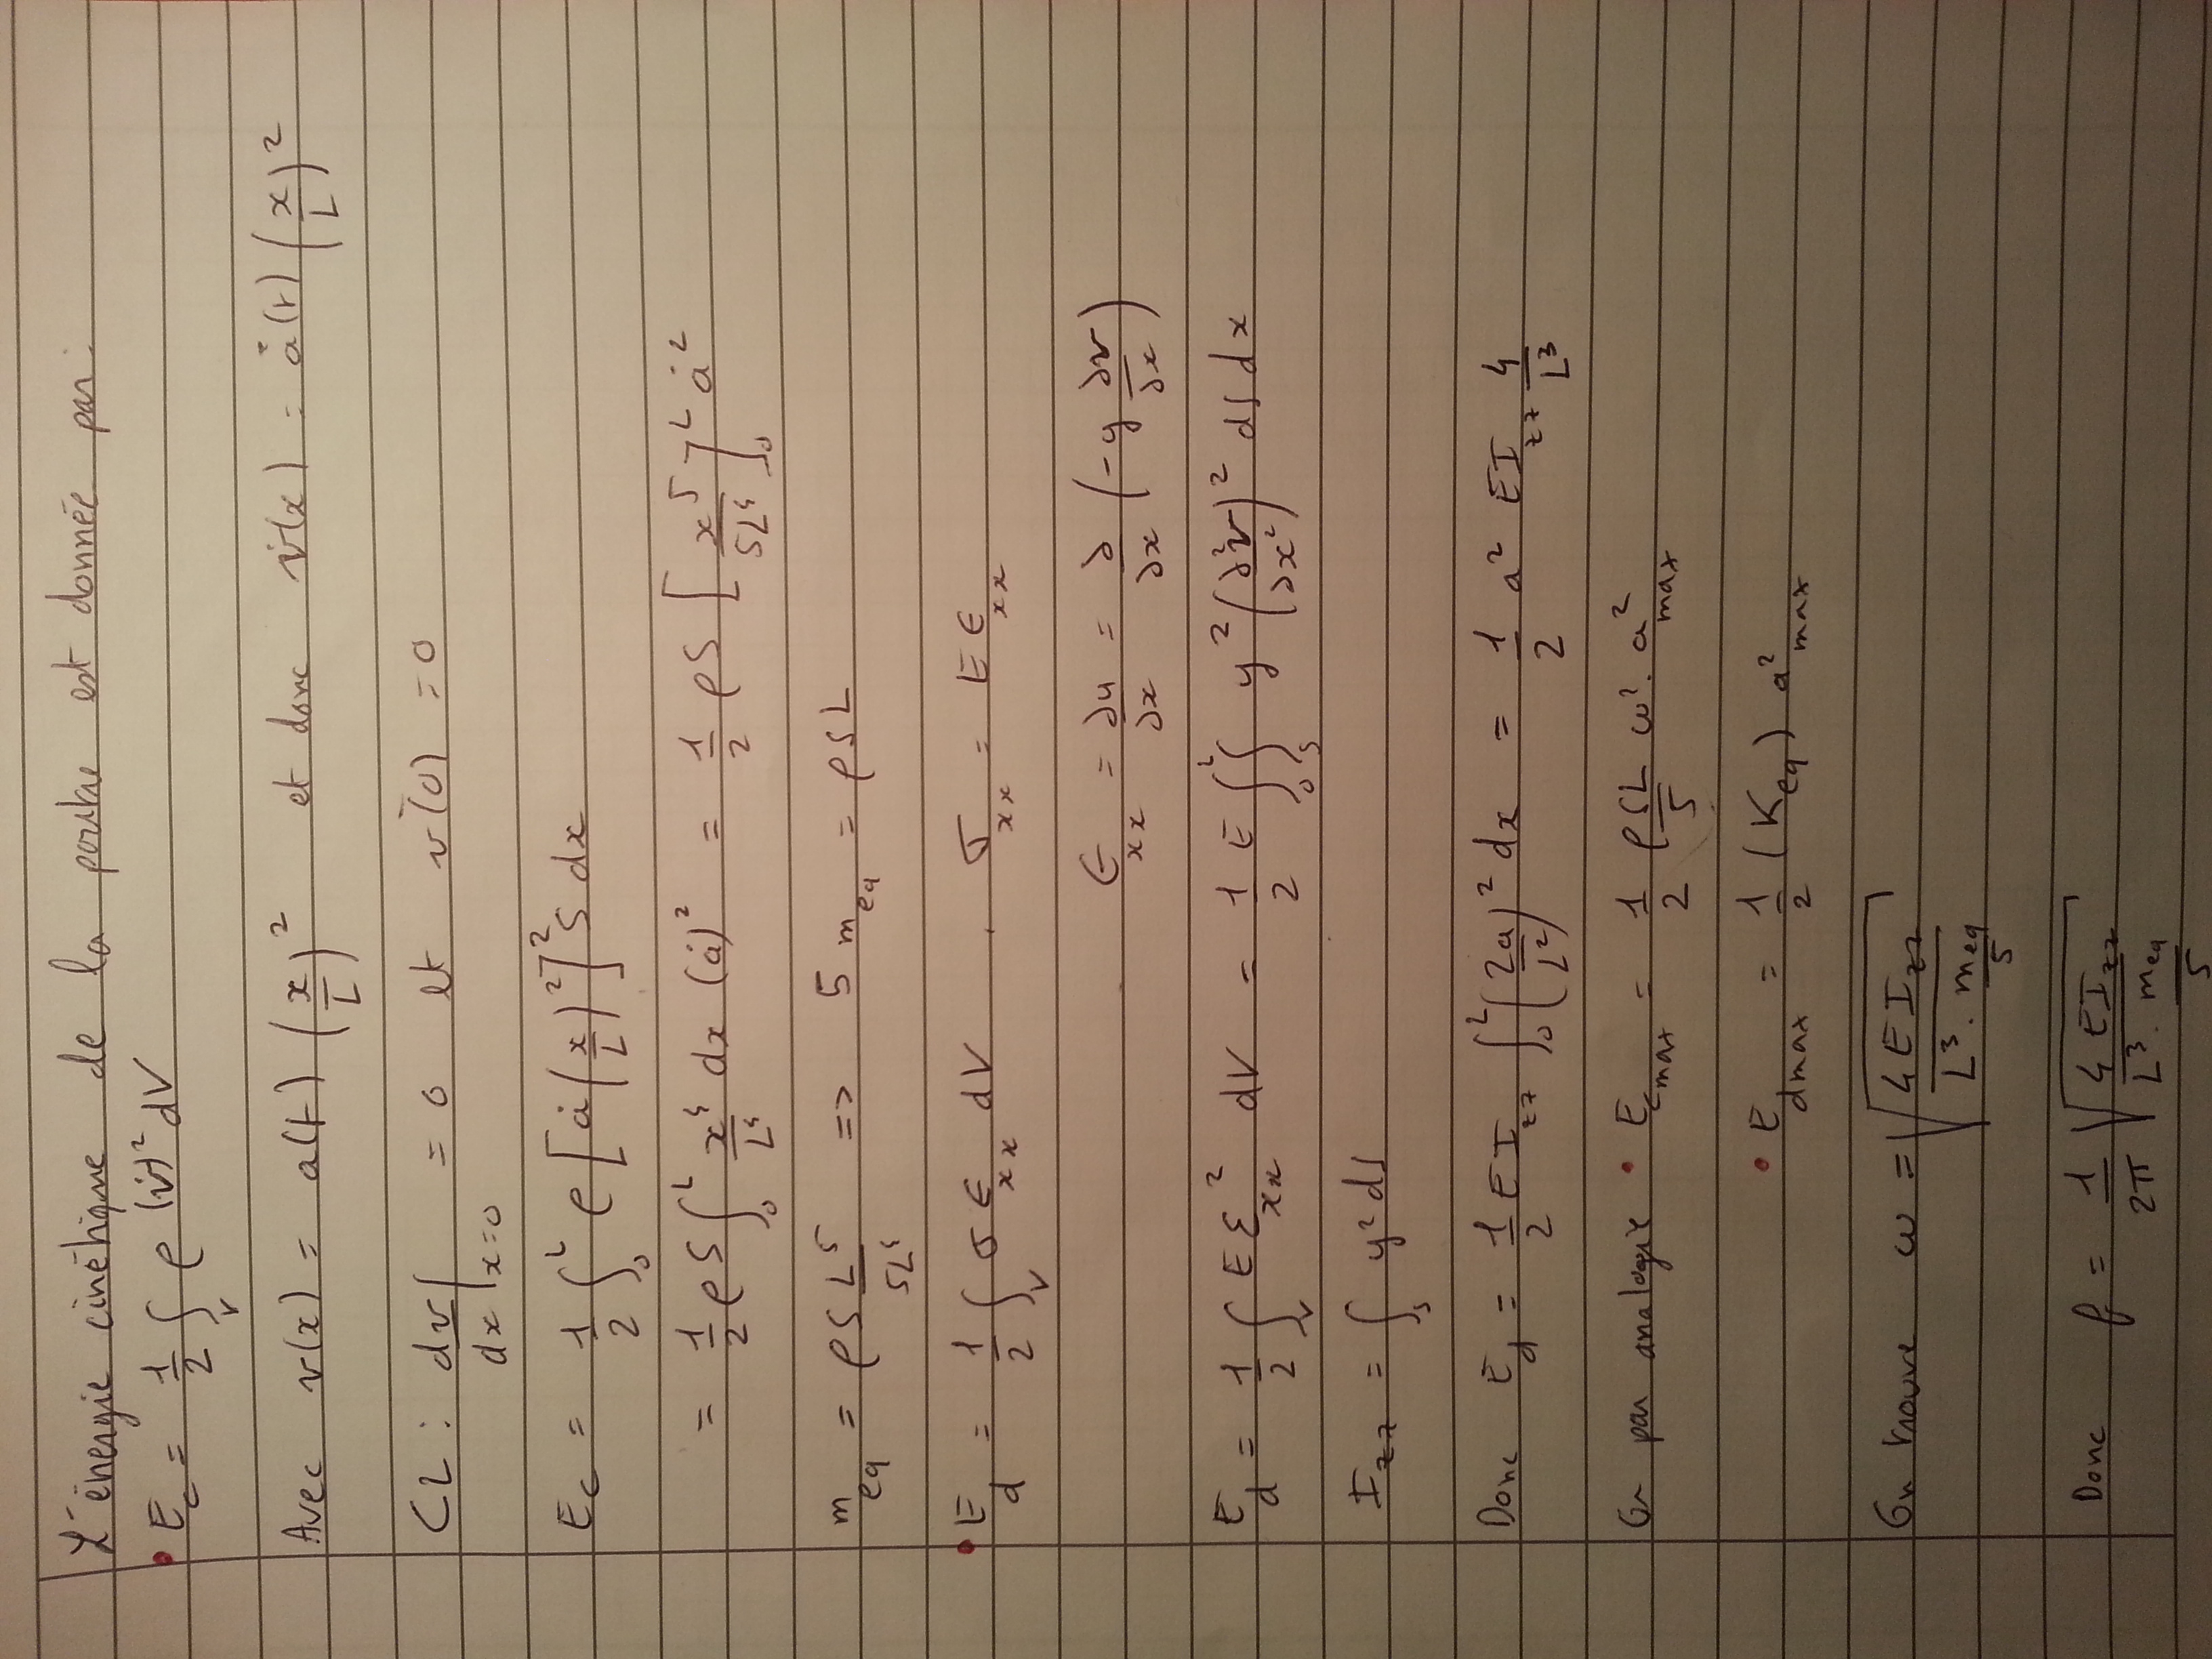 L'énergie cinétique de la poutre est donnée par :
• E_c = 1/2 ∫_V ρ (v̇)² dV
Avec v(x) = a(t) (x/L)² et donc v̇(x) = ȧ(t) (x/L)²
CL : dv/dx |_{x=0} = 0 et v(0) = 0
E_c = 1/2 ∫_0^L ρ [ȧ (x/L)²]² S dx
= 1/2 ρS ∫_0^L x⁴/L⁴ dx (ȧ)² = 1/2 ρS [x⁵/5L⁴]_0^L ȧ²
m_eq = ρS L⁵/5L⁴ => 5 m_eq = ρSL
• E_d = 1/2 ∫_V σ ε_xx dV , σ_xx = E ε_xx
ε_xx = ∂u/∂x = ∂/∂x (-y ∂v/∂x)
E_d = 1/2 ∫_V E ε_xx² dV = 1/2 E ∫_0^L ∫_S y² (∂²v/∂x²)² dS dx
I_zz = ∫_S y² dS
Donc E_d = 1/2 E I_zz ∫_0^L (2a/L²)² dx = 1/2 a² E I_zz 4/L³
On par analogie • E_cmax = 1/2 ρSL/5 ω². a²_max
• E_dmax = 1/2 (K_eq) a²_max
On trouve ω = √(4 E I_zz / (L³ . m_eq/5))
Donc f = 1/2π √(4 E I_zz / (L³ . m_eq/5))